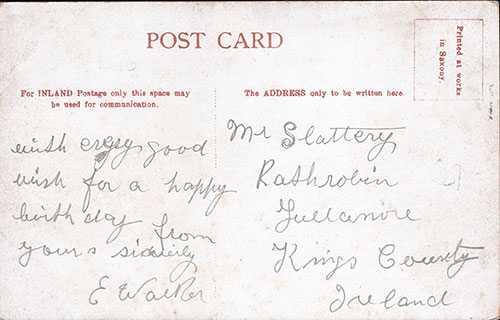 POST CARD
Printed at works
in Saxony.
For INLAND Postage only this space may
be used for communication.
The ADDRESS only to be written here.
with every good
wish for a happy
birth day from
yours sincerily
E Walker
Mr Slattery
Rathrobin
Tullamore
Kings County
Ireland